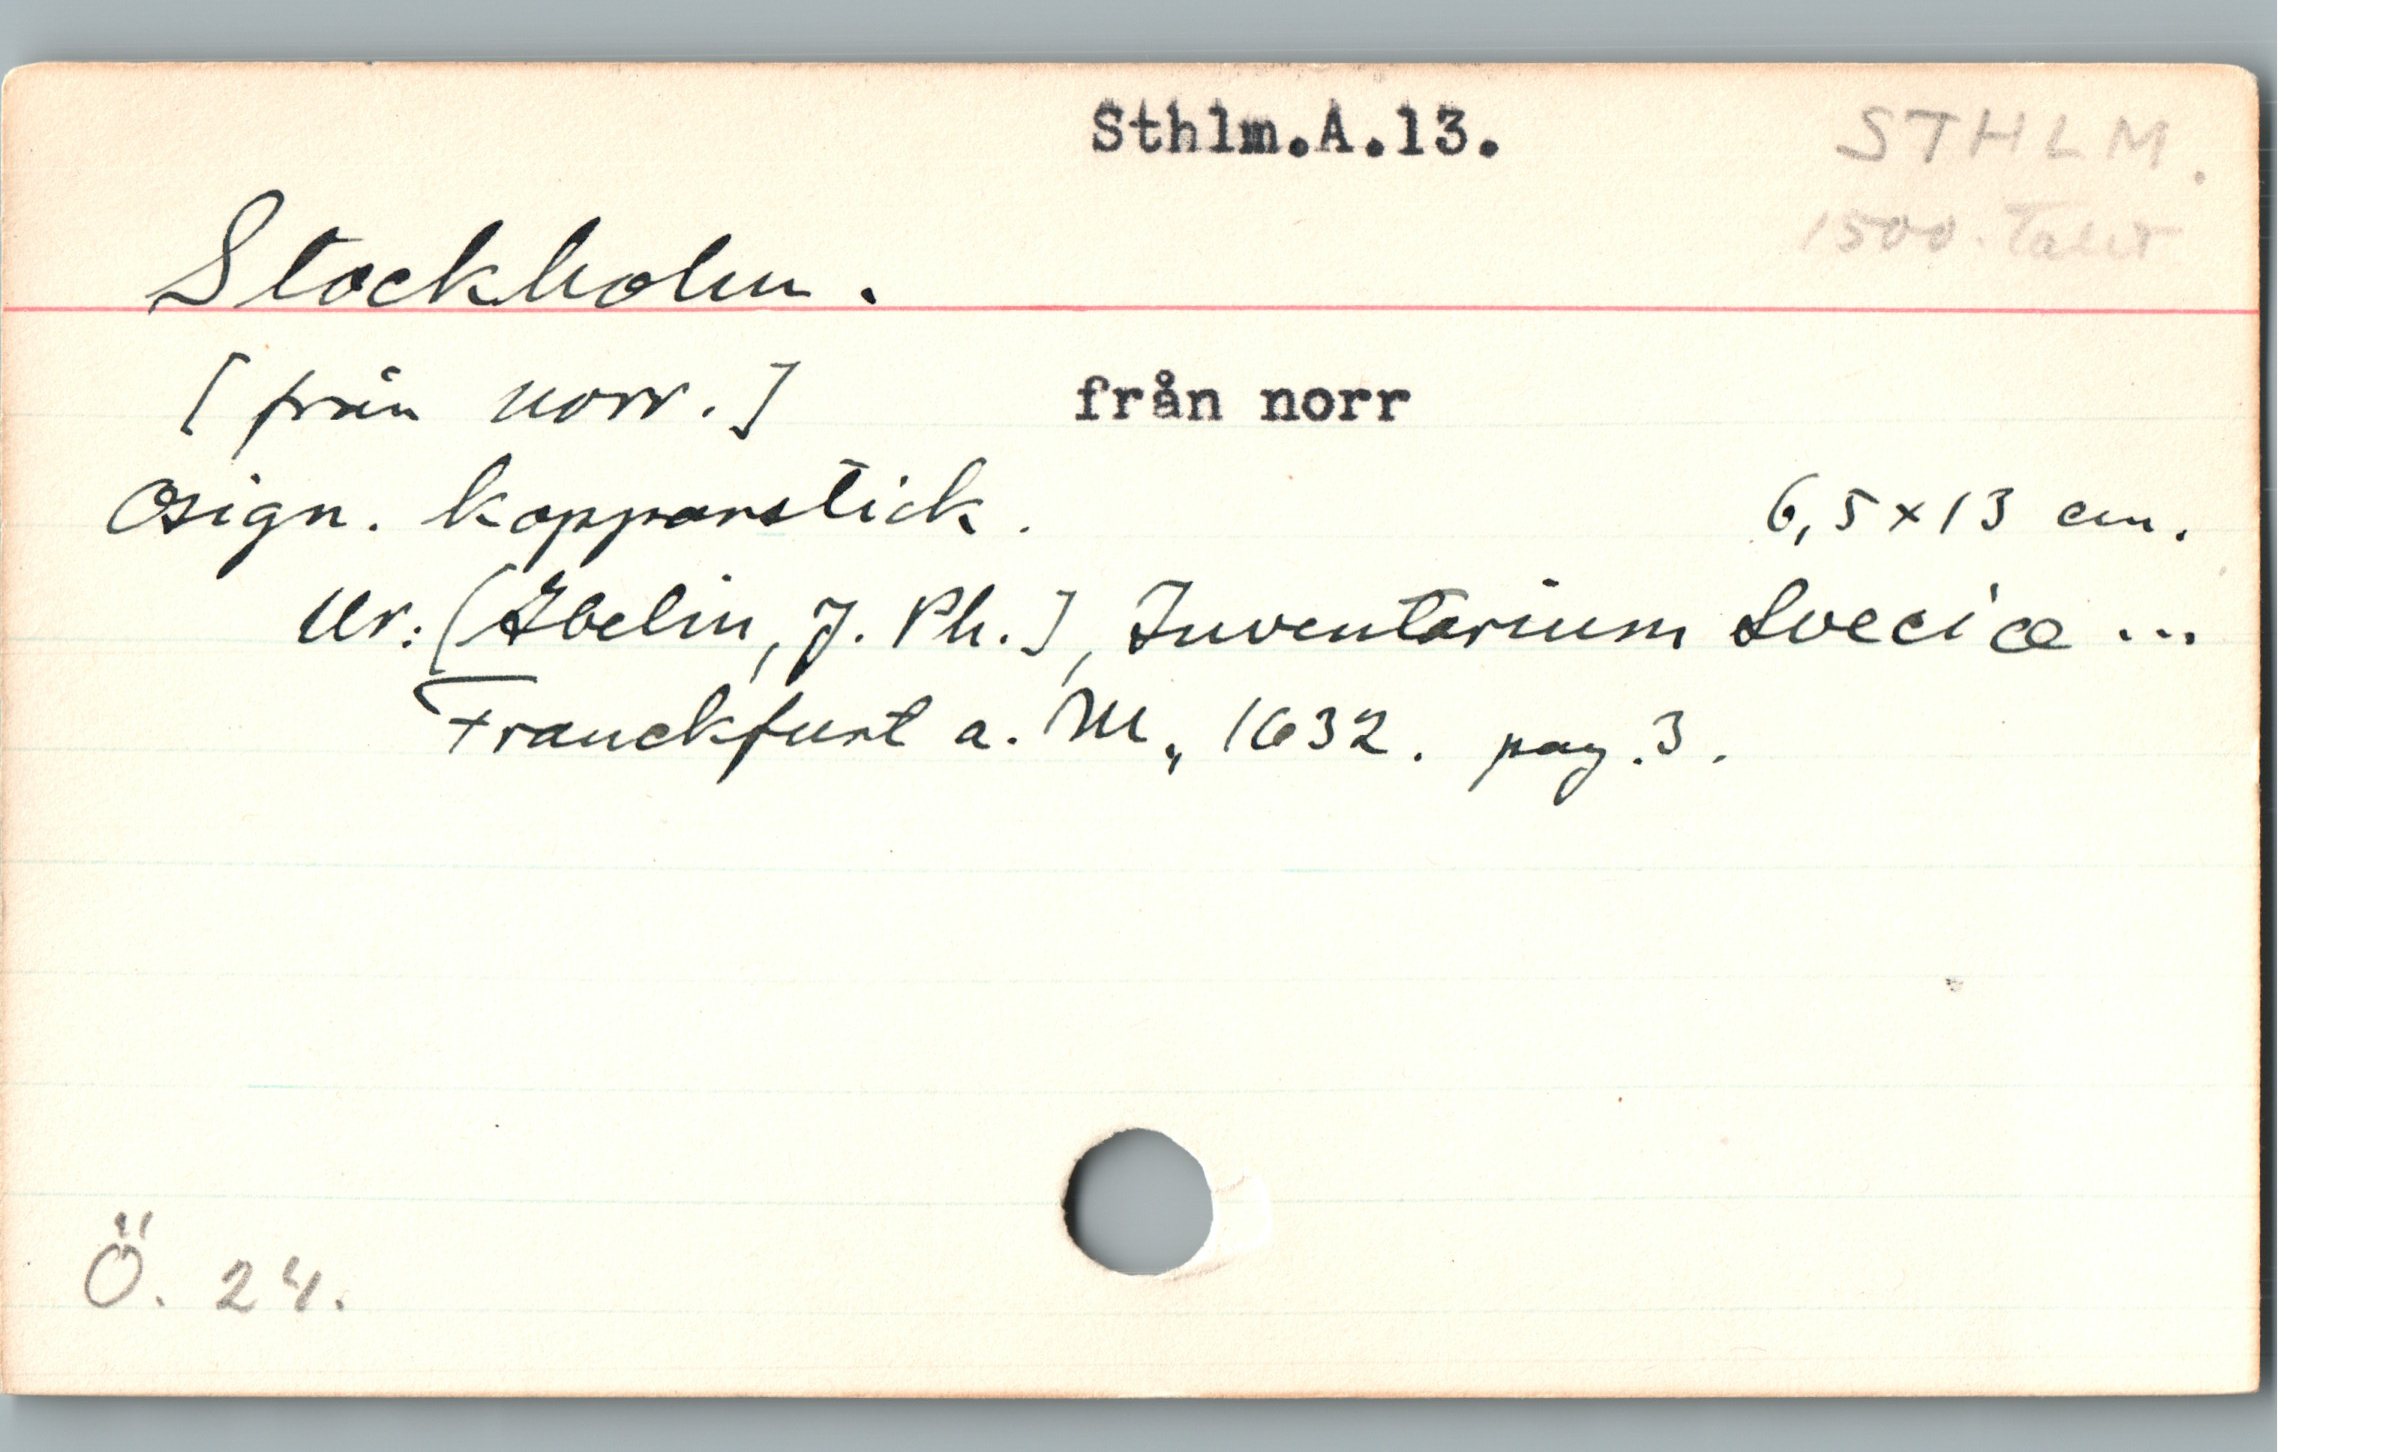 Sthlm.A.13.
STHLM.
1500-talet
Stockholm.
[från norr.] från norr
Osign. kopparstick. 6,5 x 13 cm.
Ur: [Abelin, J. Ph.], Inventarium Sveciæ ...
Franckfurt a. M., 1632. pag. 3.
Ö. 24.